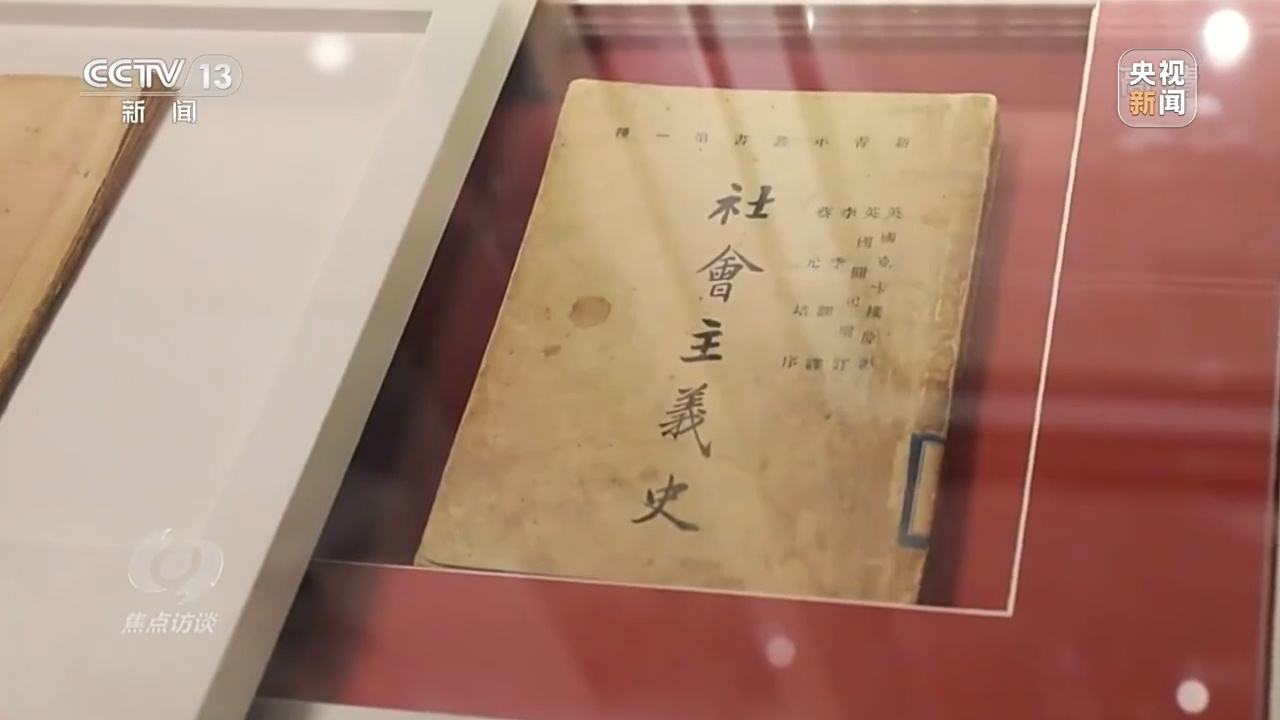 CCTV 13
新闻
央视
新闻
新青年叢書第一種
英國克卡樸原著
英國闢司增訂
李季譯
蔡元培序
社會主義史
焦点访谈